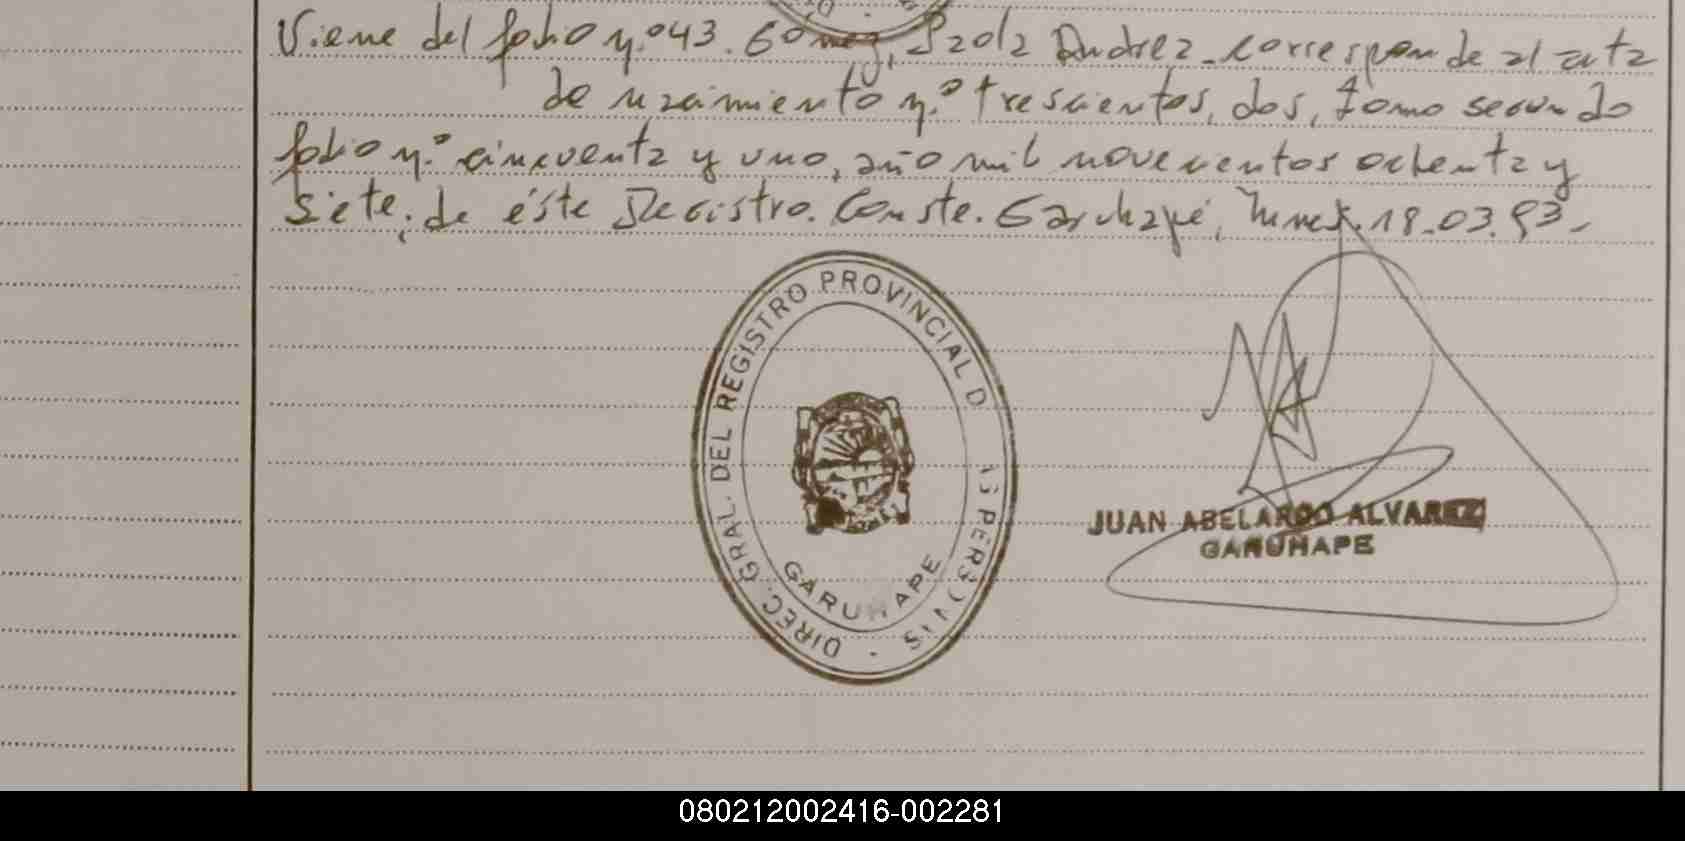 Viene del folio n.º 043. Gómez, Paola Andrea. corresponde al acta
de nacimiento n.º trescientos, dos, tomo segundo
folio n.º cincuenta y uno, año mil novecientos ochenta y
siete, de éste Registro. Conste. Garuhapé, Mnes. 18.03.93.-
DIREC. GRAL. DEL REGISTRO PROVINCIAL D
GARUHAPE
JUAN ABELARDO ALVAREZ
GARUHAPE
080212002416-002281